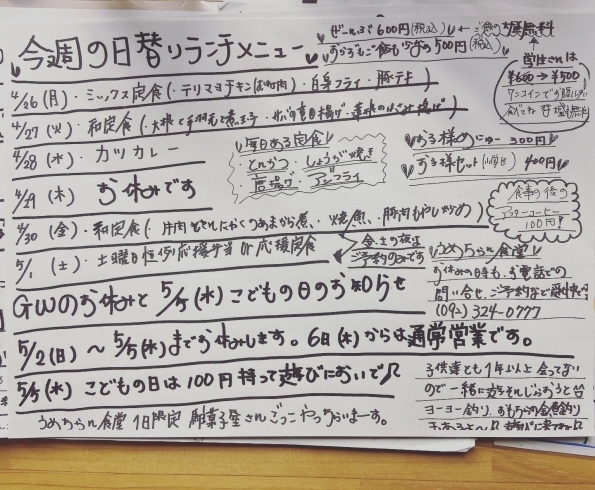 今週の日替りランチメニュー
ぜーんぶ600円(税込)
おかずもご飯も少なめ500円(税込)
学生さんは
¥600→¥500
ワンコインで
4/26(月)・ミックス定食(・テリマヨチキン・白身フライ・豚天)
4/27(火)・和定食(・大根と手羽元と煮玉子・サバ竜田揚げ・
4/28(水)・カツカレー
4/29(木) お休みです
4/30(金)・和定食(・牛肉とこんにゃくのあまから煮・焼魚・豚肉もやし炒め)
5/1(土)・土曜日恒例応援弁当 or 応援定食
毎日ある定食
・とんかつ・しょうが焼き
・唐揚げ・アジフライ
金、土の夜は
ご予約のみです
お子様めにゅー 300円
お子様セット(小学生) 400円
食事の後の
アフターコーヒー
100円!
うめちゃん食堂
お休みの時も、お電話での
問い合せ、ご予約など受付中
(092)324-0777
GWのお休みと5/5(水)こどもの日のお知らせ
5/2(日)〜5/5(水)までお休みします。6日(木)からは通常営業です。
5/5(水)こどもの日は100円持って遊びにおいで♫
うめちゃん食堂 1日限定 駄菓子屋さんごっこやっちゃいまーす。
子供達とも1年以上会ってない
ので一緒に
ヨーヨー釣り、おもちゃの金魚釣り